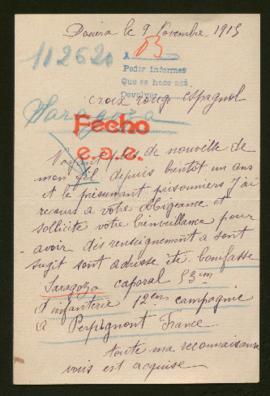 Douéra le 9 Novembre 1915
112620
A 53
Pedir informes
Que se hace acá
Devolver
croix rouge espagnol
Saragoza
Fecho
e.o.e.
N'ayant pas de nouvelle de
mon fils depuis bientôt un ans
et le présumant prisonniers J'ai
recours a votre obligeance et
sollicite votre bienveillance pour
avoir des renseignement a sont
sugit sont adresse été bonifasse
Saragoza caporal 53em
d'infanterie 12em campagnie
a Perpignont France
toute ma reconnaissance
vous est acquise